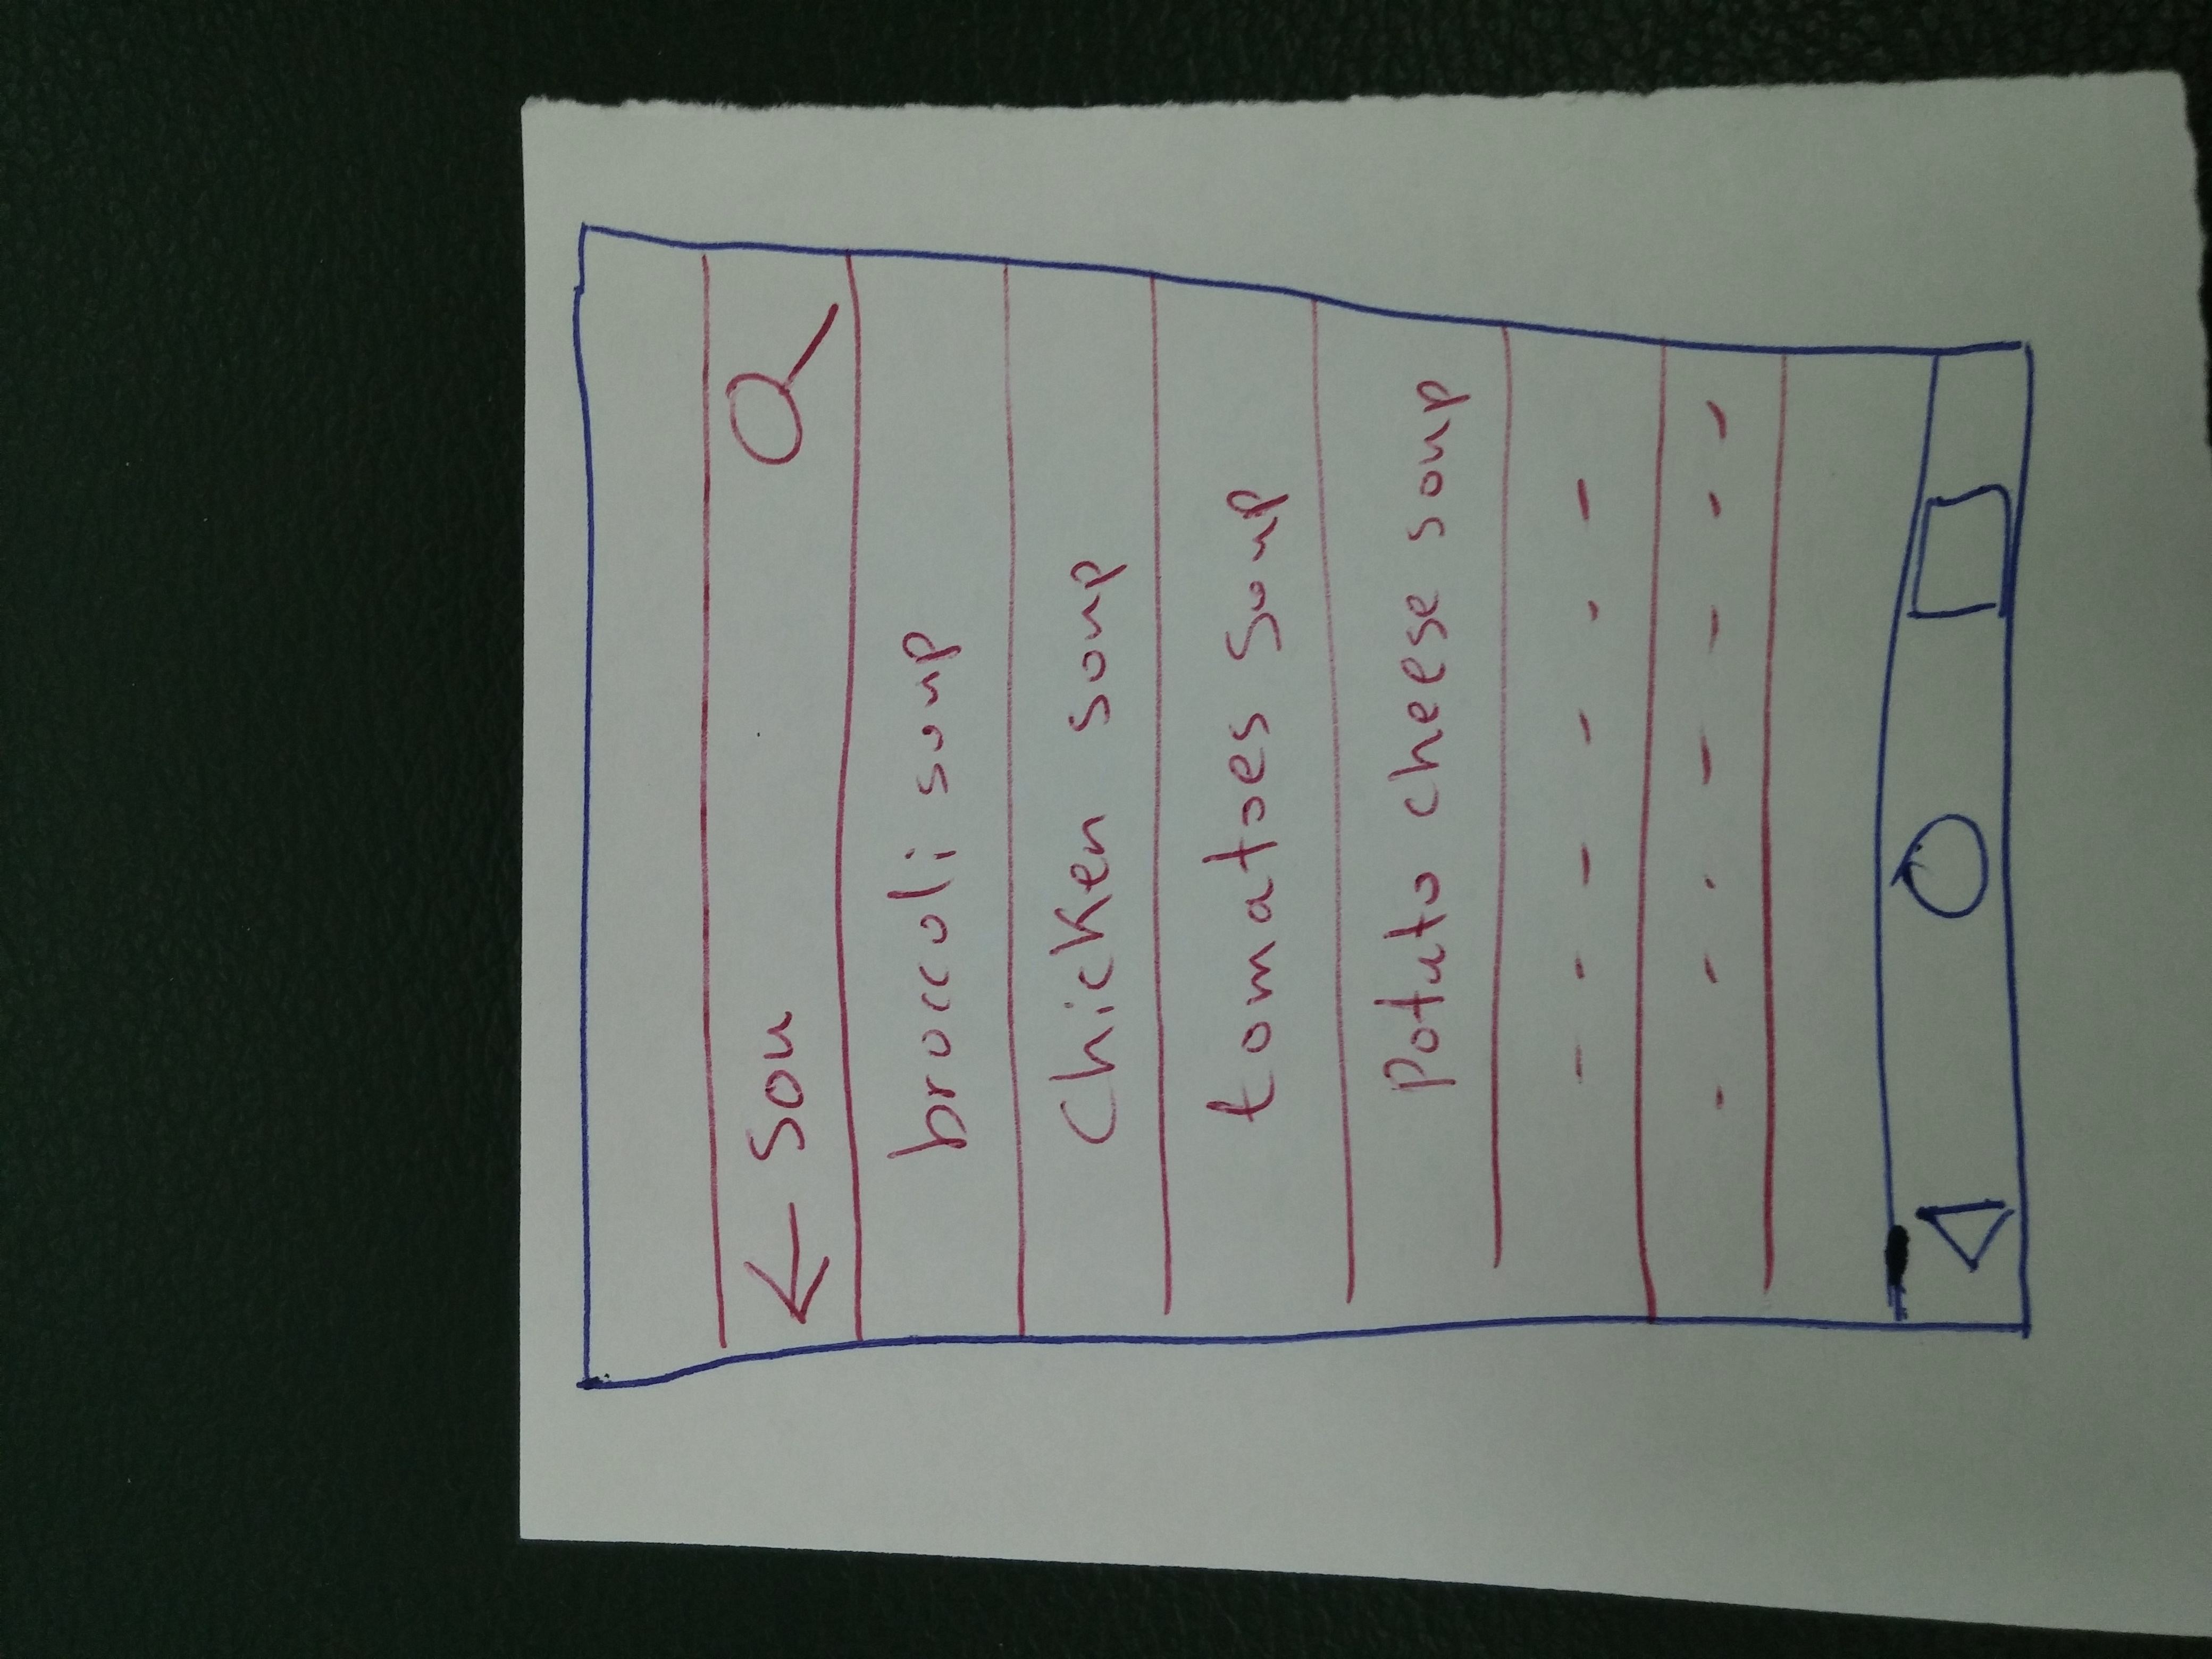 Sou
broccoli soup
Chicken soup
tomatoes soup
Potato cheese soup